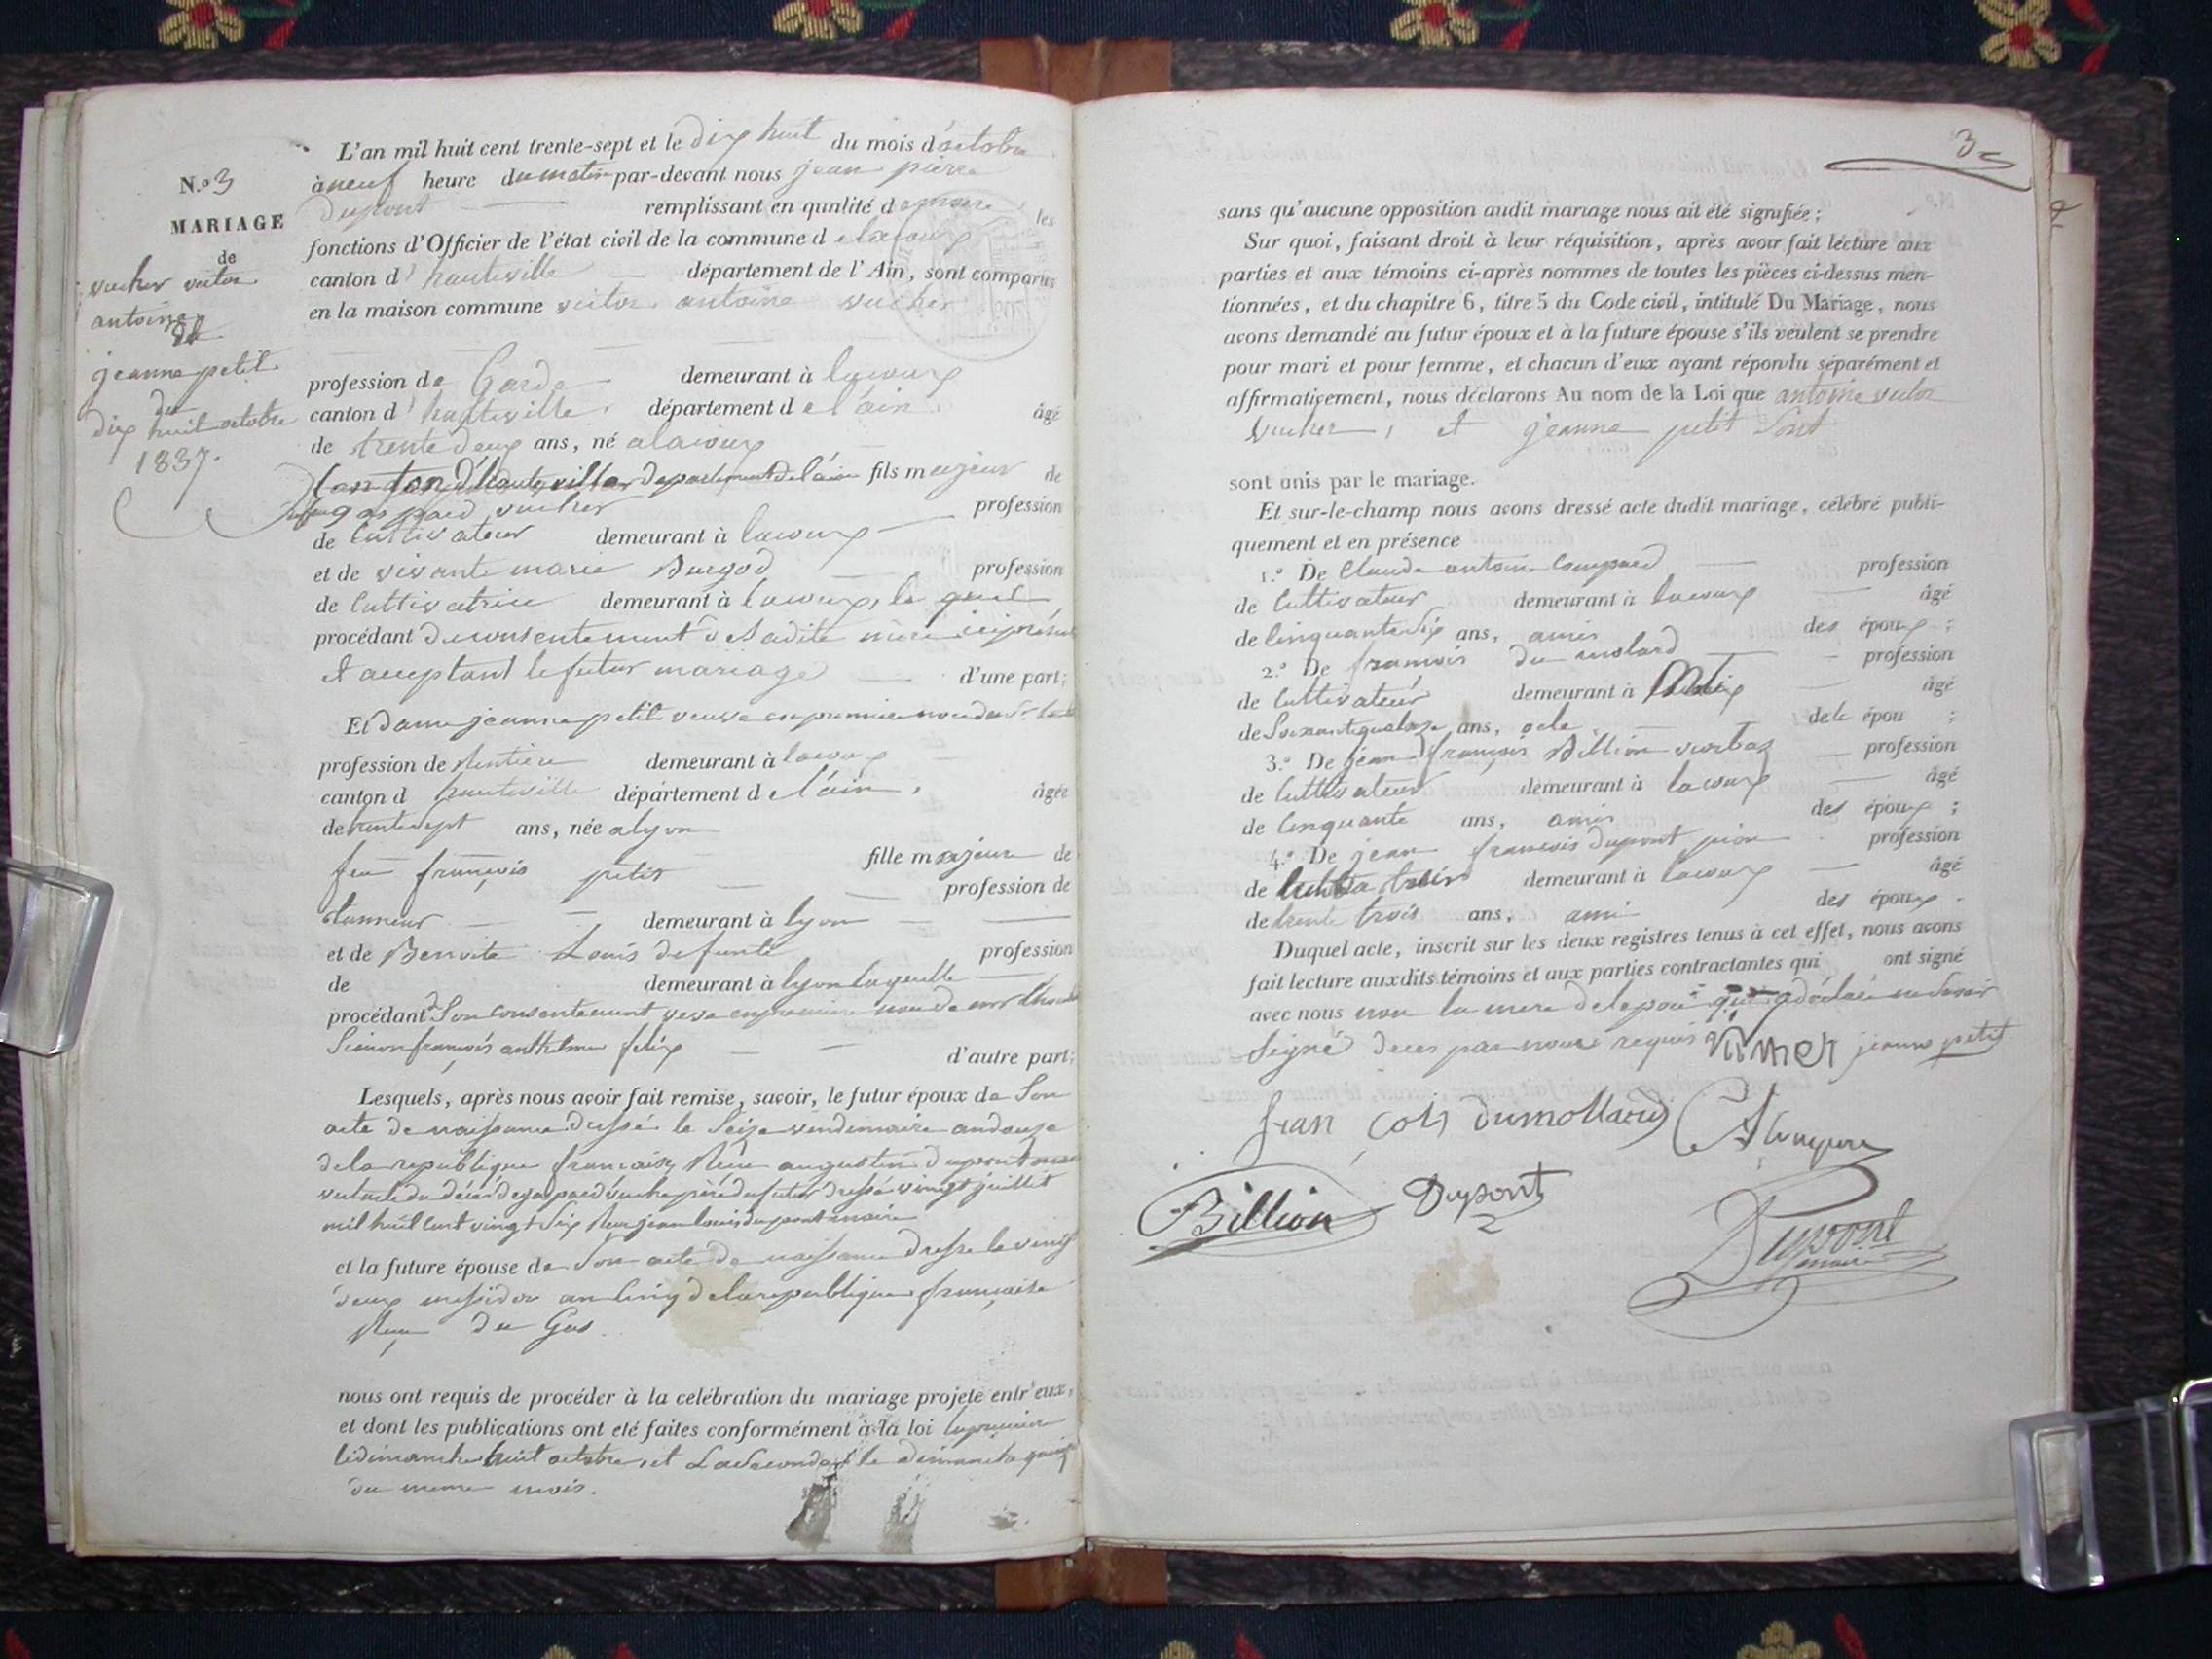 N.o 3
MARIAGE
de
vucher victor
antoine
et
jeanne petit
du
dix huit octobre
1837.
L'an mil huit cent trente-sept et le dix huit du mois d'octobre
à neuf heure du matin par-devant nous jean pierre
Dupont remplissant en qualité de maire les
fonctions d'Officier de l'état civil de la commune de lacoux
canton d' hauteville département de l'Ain, sont comparus
en la maison commune victor antoine vucher
profession de Garde demeurant à lacoux
canton d' hauteville département de l'ain âgé
de trente deux ans, né a lacoux
Canton d'hauteville departement de l'ain fils majeur de
feu gaspard vucher profession
de Cultivateur demeurant à lacoux
et de vivante marie Burgod profession
de Cultivatrice demeurant à lacoux, le quel
procédant du consentement de sadite mère ici présente
et acceptant le futur mariage d'une part;
Et dame jeanne petit veuve en premiere noce de
profession de Rentiere demeurant à lacoux
canton d hauteville département de l'ain, âgée
de ans, née a lyon
fille majeure de
feu françois petit profession de
tanneur demeurant à lyon
et de Benoite Louis defunte profession
de demeurant à lyon laquelle
procédant de Son consentement veve en premiere noce de
Simon françois anthelme felix d'autre part;
Lesquels, après nous avoir fait remise, savoir, le futur époux de Son
acte de naissance dressé le Seize vendemiaire an douze
de la republique francaise, Reçu augustin dupont maire
vu l'acte du décès de gaspard vucher père du futur dressé vingt juillet
mil huit cent vingt Six Reçu jean louis dupont maire
et la future épouse de Son acte de naissance dresse le vingt
deux messidor an Cinq de la republique française
Reçu du Gas.
nous ont requis de procéder à la celébration du mariage projeté entr'eux,
et dont les publications ont eté faites conformément à la loi la premiere
le dimanche huit octobre, et La Seconde le dimanche quinze
du meme mois.
3
sans qu'aucune opposition audit mariage nous ait été signifiée;
Sur quoi, faisant droit à leur réquisition, après avoir fait lecture aux
parties et aux témoins ci-après nommes de toutes les pièces ci-dessus men-
tionnées, et du chapitre 6, titre 5 du Code civil, intitulé Du Mariage, nous
avons demandé au futur époux et à la future épouse s'ils veulent se prendre
pour mari et pour femme, et chacun d'eux ayant répondu séparément et
affirmativement, nous déclarons Au nom de la Loi que antoine victor
Vucher, et jeanne petit Sont
sont unis par le mariage.
Et sur-le-champ nous avons dressé acte dudit mariage, célébré publi-
quement et en présence
1.o De Claude antoine profession
de Cultivateur demeurant à lacoux âgé
de Cinquante Six ans, amis des époux;
2.o De françois du molard profession
de Cultivateur demeurant à âgé
de Soixante quatorze ans, de le épou;
3.o De jean françois Billion profession
de Cultivateur demeurant à lacoux âgé
de Cinquante ans, amis des époux;
4.o De jean francois dupont profession
de demeurant à lacoux âgé
de trente trois ans, ami des époux.
Duquel acte, inscrit sur les deux registres tenus à cet effet, nous avons
fait lecture auxdits témoins et aux parties contractantes qui ont signé
avec nous non la mere de l'epoux qui a déclaré ne Savoir
Signé de ces par nous requis jeanne petit
fran çois dumollard
Billion Dupont
Dupont
maire